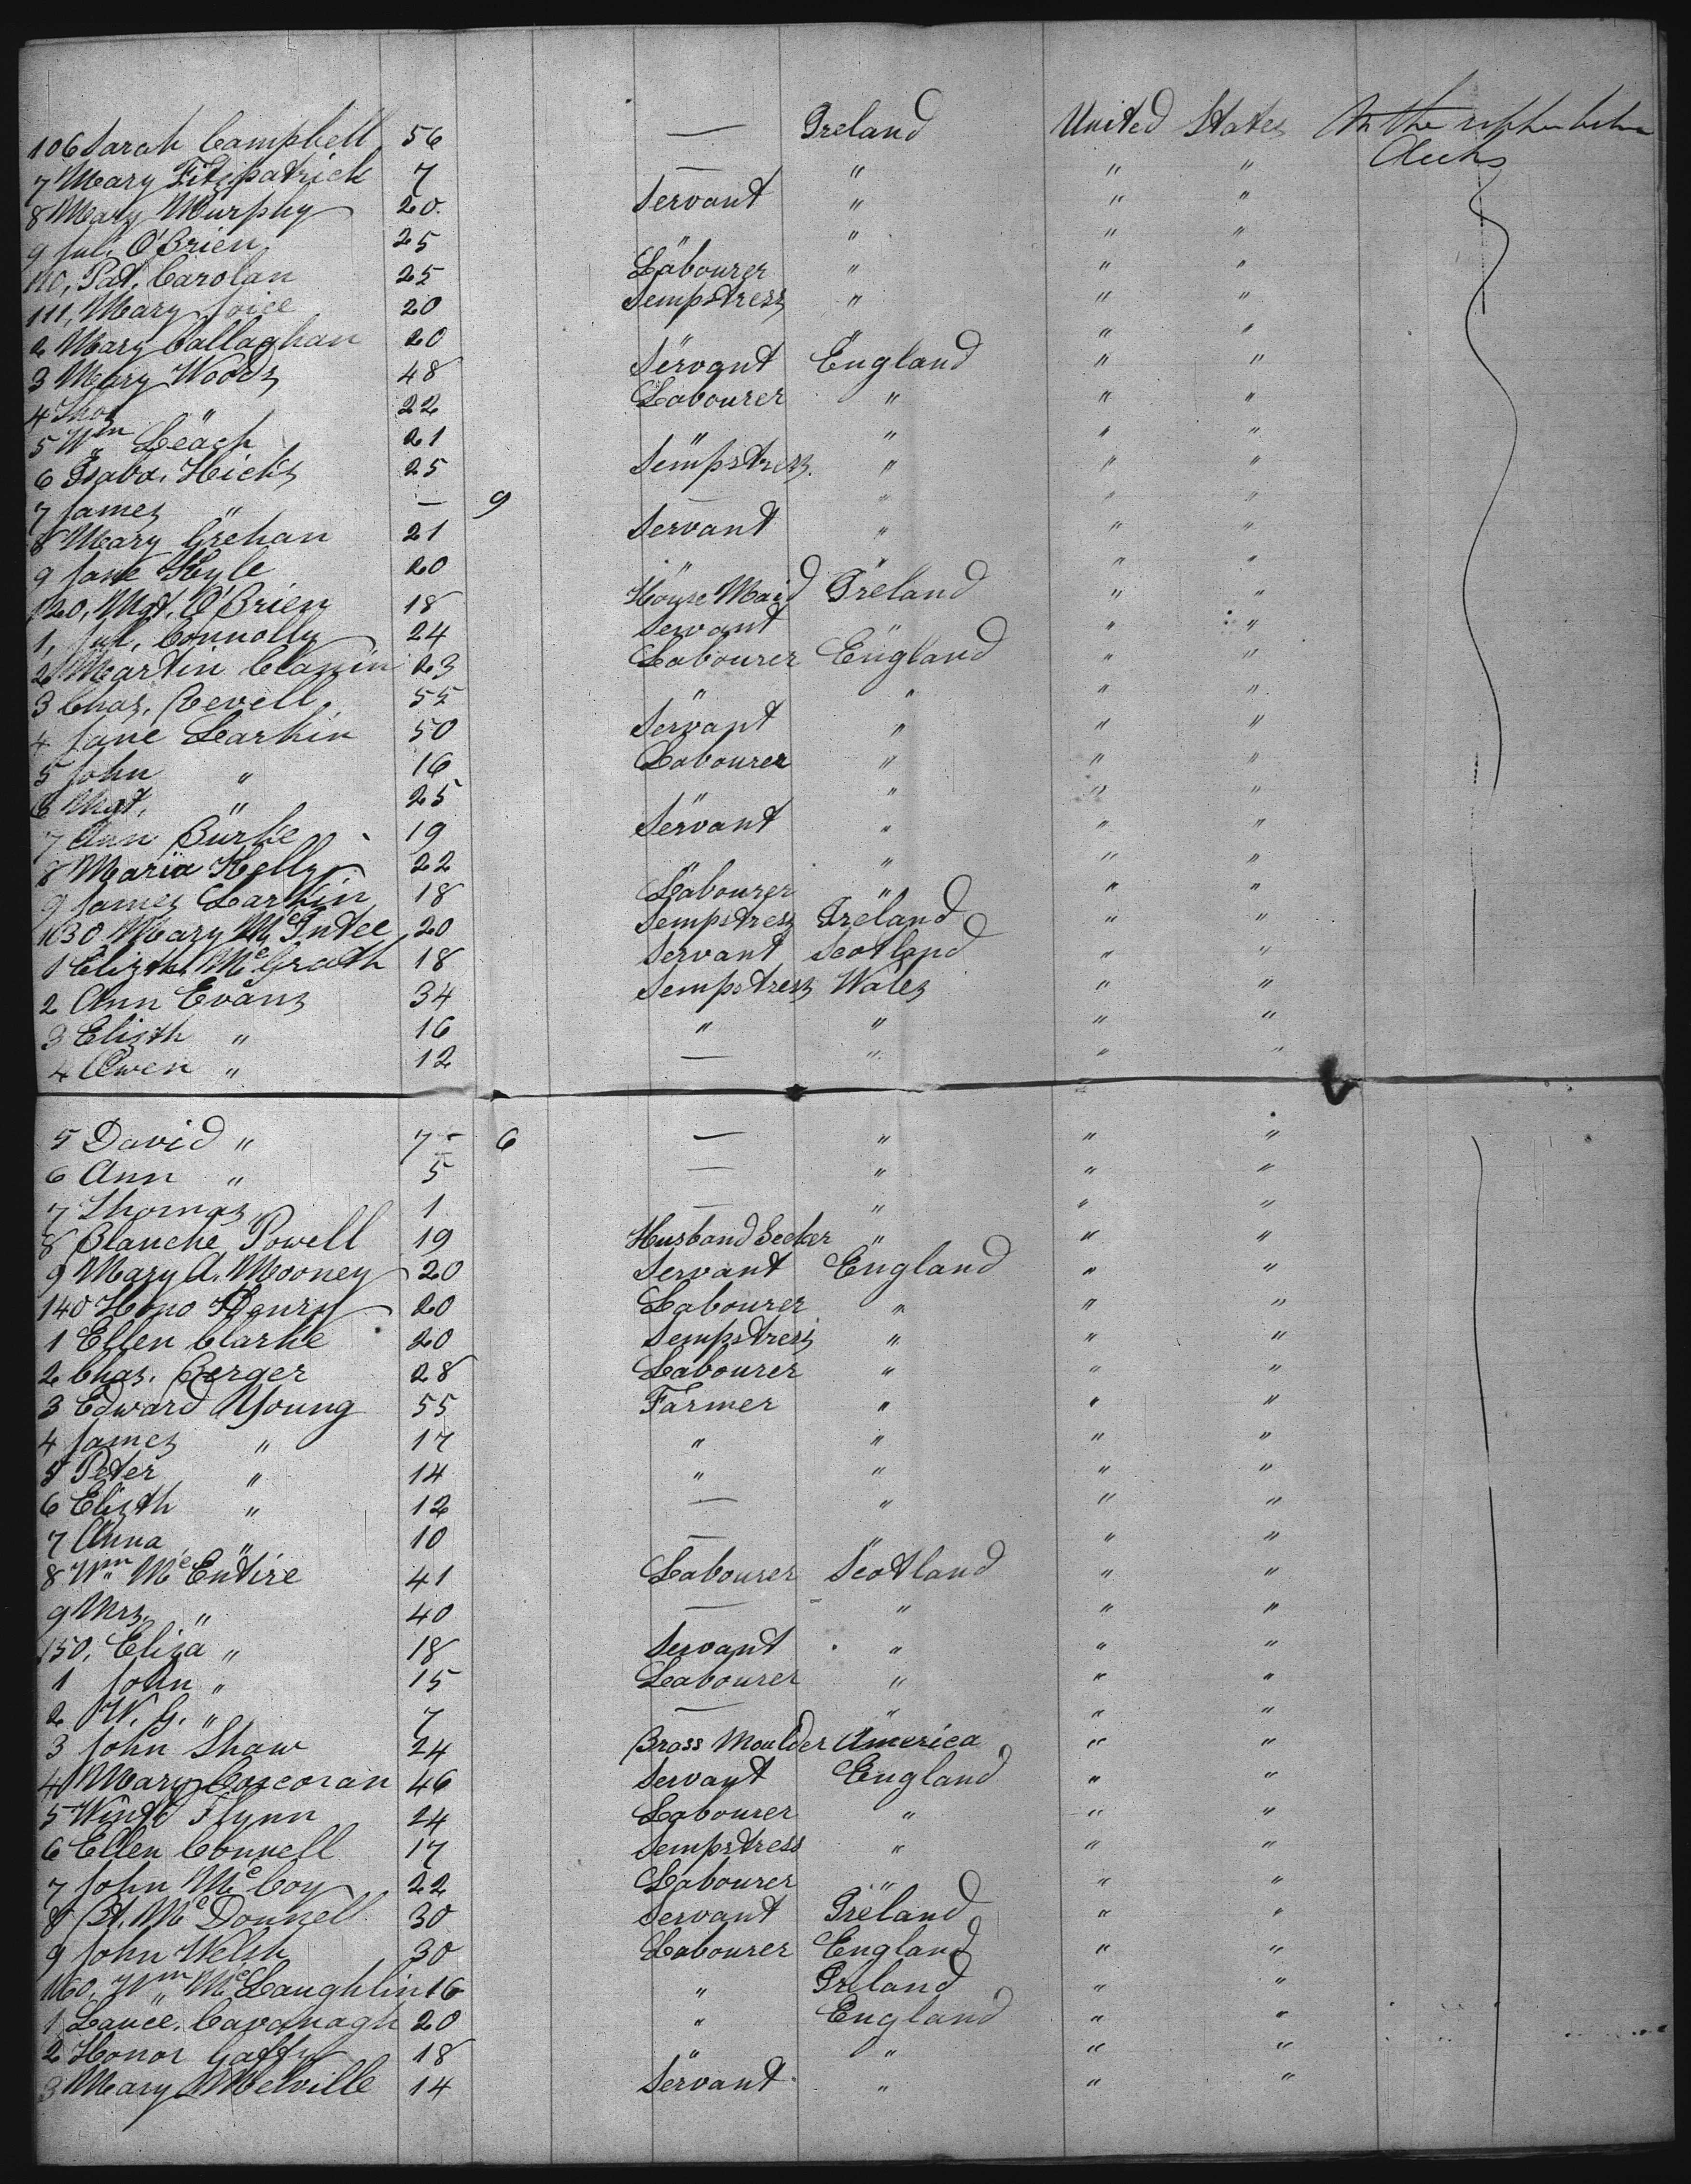 106 Sarah Campbell 56 — Ireland United States On the upper between
Decks
7 Mary Fitzpatrick 7 — " " "
8 Mary Murphy 20. Servant " " "
9 Jul. O'Brien 25 " " " "
110, Pat. Carolan 25 Labourer " " "
111, Mary Joice 20 Sempstress " " "
2 Mary Callaghan 20 " " " "
3 Mary Woods 48 Servant England " "
4 Thos " 22 Labourer " " "
5 Wm Leach 21 " " " "
6 Isaba. Hicks 25 Sempstress. " " "
7 James " — 9 — " " "
8 Mary Grehan 21 Servant " " "
9 Jane Kyle 20 " " " "
120, Mgt. O'Brien 18 House Maid Ireland " "
1, Jul. Connolly 24 Servant " " "
2 Martin 23 Labourer England " "
3 Chas. Revell 55 " " " "
4 Jane Larkin 50 Servant " " "
5 John " 16 Labourer " " "
6 Mgt. " 25 " " " "
7 Ann Burke 19 Servant " " "
8 Maria Kelly 22 " " " "
9 James Larkin 18 Labourer " " "
130 Mary McIntee 20 Sempstress Ireland " "
1 Elizth McGrath 18 Servant Scotland " "
2 Ann Evans 34 Sempstress Wales " "
3 Elizth " 16 " " " "
4 Owen " 12 — " " "
5 David " 7 - 6 — " " "
6 Ann " 5 — " " "
7 Thomas 1 — " " "
8 Blanche Powell 19 Husband Seeker " " "
9 Mary A. Mooney 20 Servant England " "
140 Hono Henry 20 Labourer " " "
1 Ellen Clarke 20 Sempstress " " "
2 Chas. Berger 28 Labourer " " "
3 Edward Young 55 Farmer " " "
4 James " 17 " " " "
5 Peter " 14 " " " "
6 Elizth " 12 — " " "
7 Anna " 10 — " " "
8 Wm McEntire 41 Labourer Scotland " "
9 Mrs. " 40 — " " "
150, Eliza " 18 Servant " " "
1 John " 15 Labourer " " "
2 W. G. " 7 — " " "
3 John Shaw 24 Brass Moulder America " "
4 Mary Corcoran 46 Servant England " "
5 Flynn 24 Labourer " " "
6 Ellen Connell 17 Sempstress " " "
7 John McCoy 22 Labourer " " "
8 Bt. McDonnell 30 Servant Ireland " "
9 John Welsh 30 Labourer England " "
160, Wm McLaughlin 16 " Ireland " "
1 Lauce. Cavanagh 20 " England " "
2 Honor Gaffy 18 " " " "
3 Mary Melville 14 Servant " " "